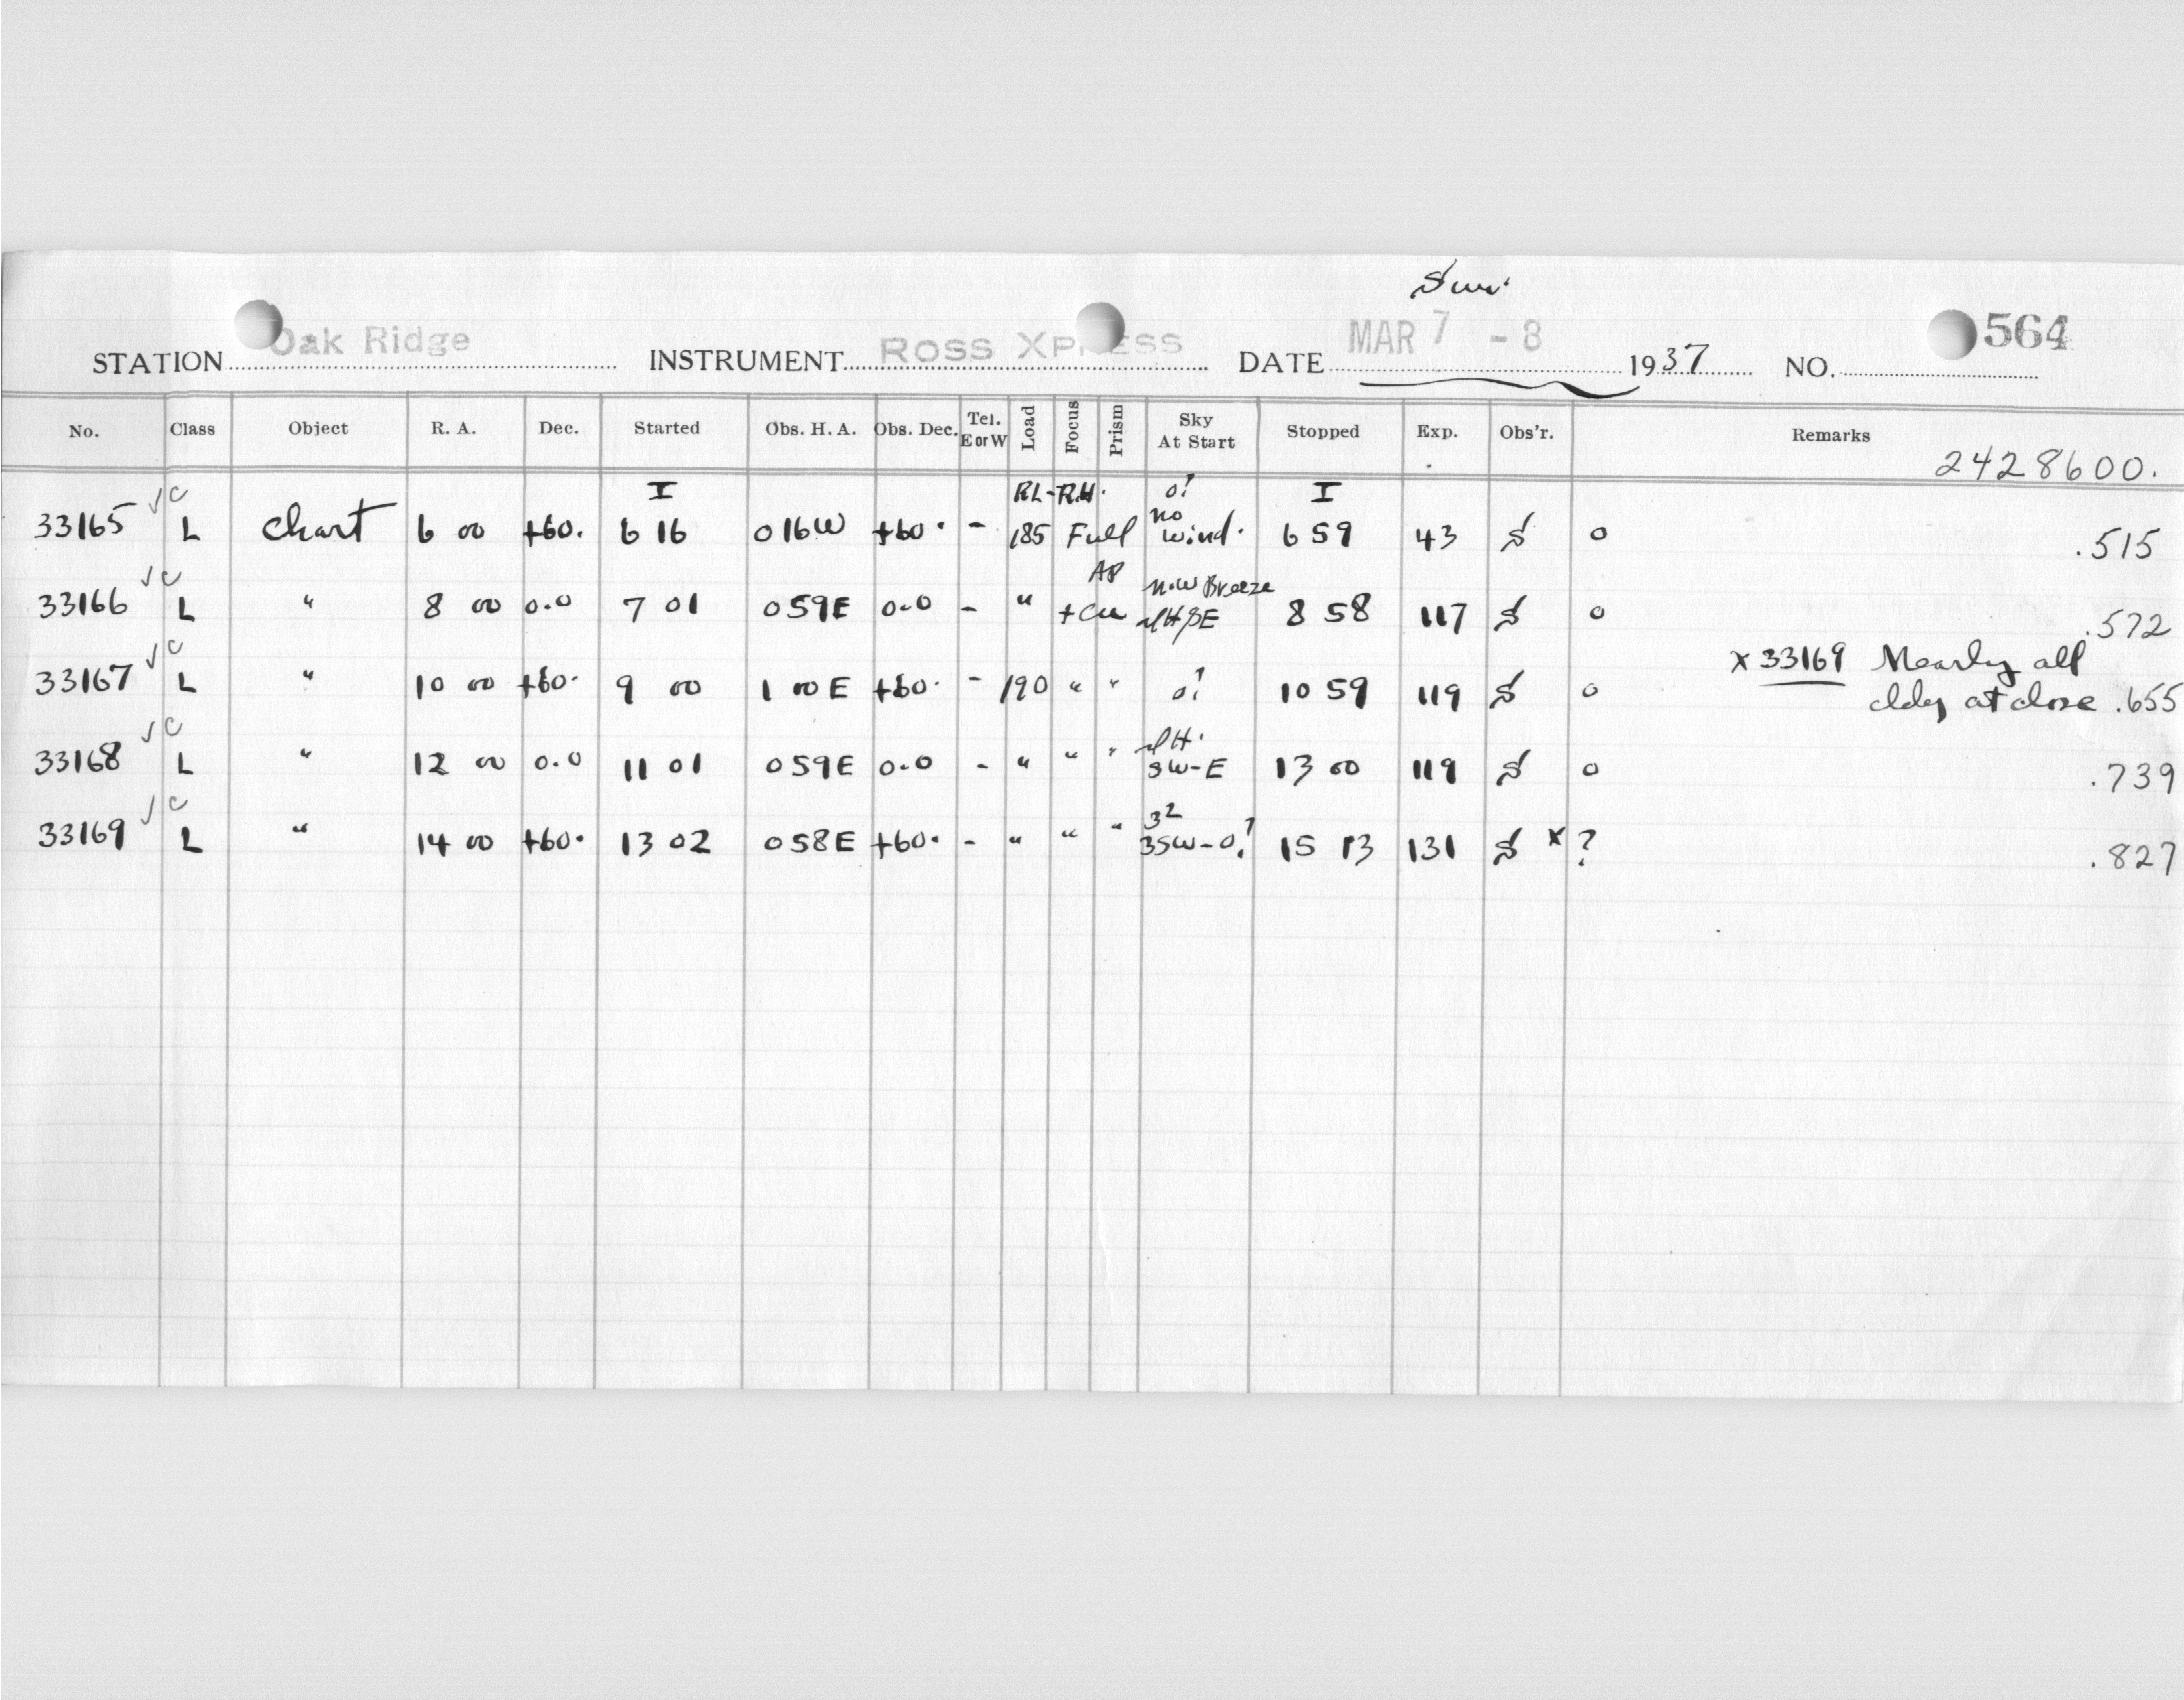 Sun.
STATION Oak Ridge INSTRUMENT Ross Xpress DATE MAR 7 - 8 1937 NO. 564
No. Class Object R. A. Dec. Started Obs. H. A. Obs. Dec. Tel. E or W Load Focus Prism Sky At Start Stopped Exp. Obs'r. Remarks
2428600.
I RL-RH. o! I
33165 √c L Chart 6 00 +60. 6 16 0 16W +60. - 185 Full no wind. 6 59 43 S o .515
AP N.W Breeze
33166 √c L " 8 00 0.0 7 01 0 59E 0.0 - " + Cu 8 58 117 S o .572
x 33169 Nearly all
33167 √c L " 10 00 +60. 9 00 1 00E +60. - 190 " " o! 10 59 119 S o cldy at close .655
33168 √c L " 12 00 0.0 11 01 0 59E 0.0 - " " " SW-E 13 00 119 S o .739
33169 √c L " 14 00 +60. 13 02 0 58E +60. - " " " 3² 3SW-o! 15 13 131 S x ? .827